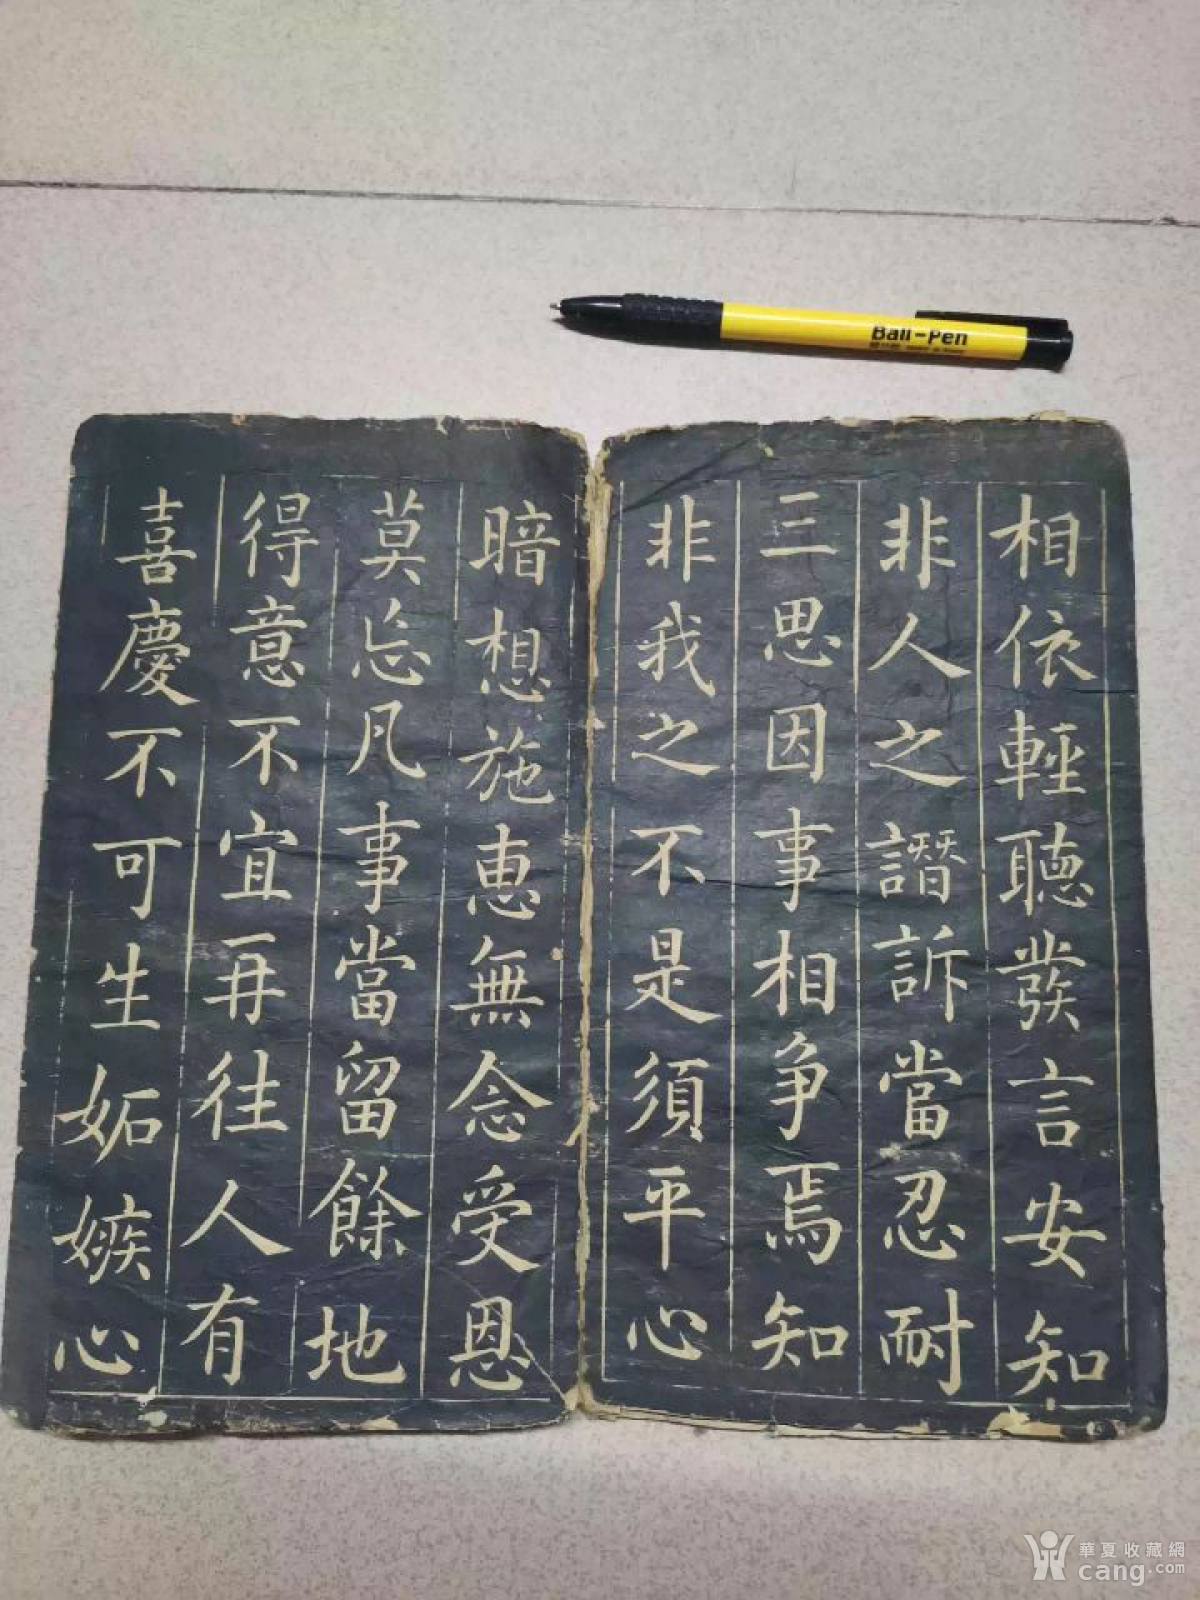 Ball-Pen
相依輕聽發言安知
非人之譖訴當忍耐
三思因事相爭焉知
非我之不是須平心
暗想施恵無念受恩
莫忘凡事當留餘地
得意不宜再往人有
喜慶不可生妬嫉心
華夏收藏網
cang.com